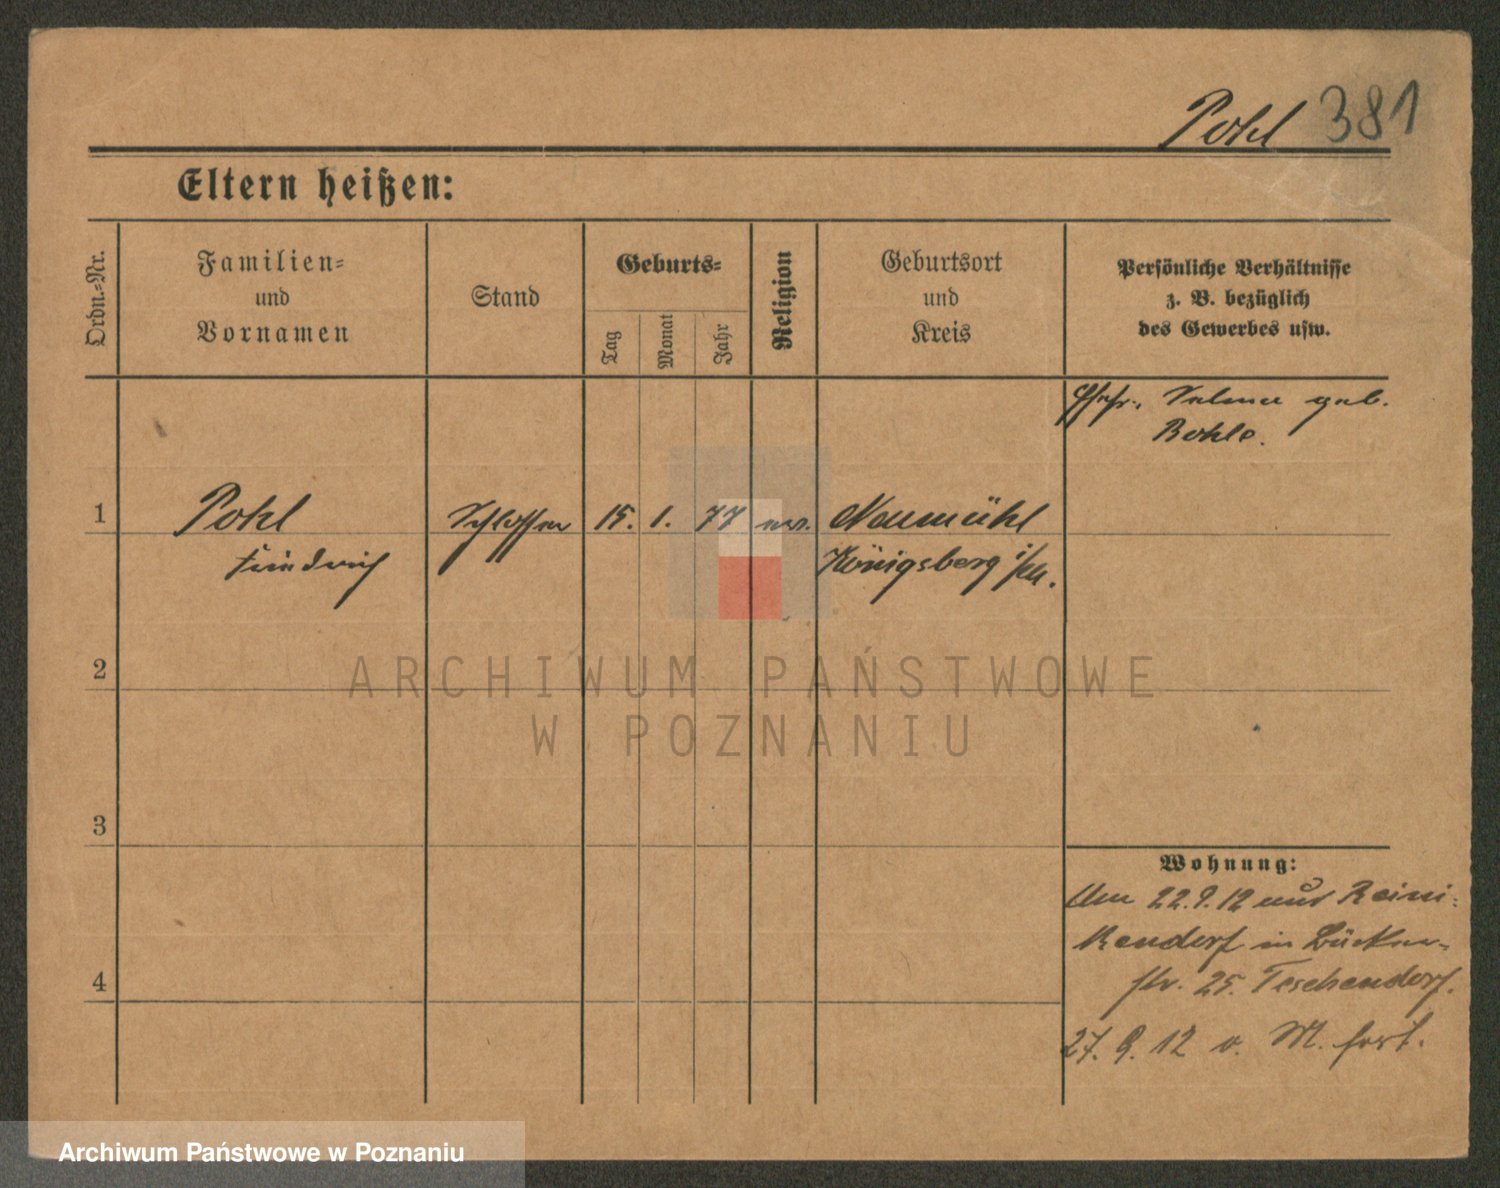 Pohl 381
Eltern heißen:
Ordn.-Nr.
Familien-
und
Vornamen
Stand
Geburts-
Tag
Monat
Jahr
Religion
Geburtsort
und
Kreis
Persönliche Verhältnisse
z. B. bezüglich
des Gewerbes usw.
Ehefr. Selma geb.
Bohle.
1 Pohl Schlosser 15. 1. 77 ev. Neumühl
Friedrich Königsberg i/
2
3
4
Wohnung:
Am 22.9.12 aus Reini-
kendorf in
str. 25. Teschendorf.
27. 9. 12 v. M. fort.
ARCHIWUM PAŃSTWOWE
W POZNANIU
Archiwum Państwowe w Poznaniu